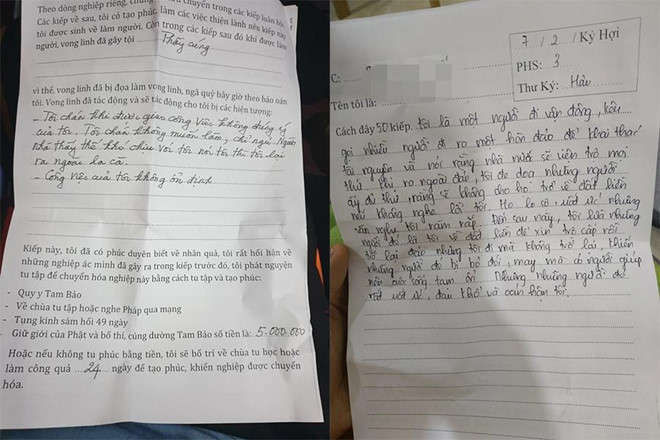 Theo dòng nghiệp riêng, chúng
chuyển trong các kiếp luân hồi
Các kiếp về sau, tôi có tạo phúc, làm các việc thiện lành nên kiếp này
tôi được sinh về làm người. Còn trong các kiếp sau đó khi được làm
người, vong linh đã gây tội Thầy cúng
vì thế, vong linh đã bị đọa làm vong linh, ngã quỷ bây giờ theo báo oán
tôi. Vong linh đã tác động và sẽ tác động cho tôi bị các hiện tượng:
- Tôi chán khi được giao công việc không đúng ý
của tôi. Tôi chán không muốn làm, chỉ ngủ. Người
nhà thấy thế khó chịu với tôi nói tôi thì tôi lại
ra ngoài la cà.
- Công việc của tôi không ổn định
Kiếp này, tôi đã có phúc duyên biết về nhân quả, tôi rất hối hận về
những nghiệp ác mình đã gây ra trong kiếp trước đó, tôi phát nguyện
tu tập để chuyển hóa nghiệp này bằng cách tu tập và tạo phúc:
- Quy y Tam Bảo
- Về chùa tu tập hoặc nghe Pháp qua mạng
- Tụng kinh sám hối 49 ngày
- Giữ giới của Phật và bố thí, cúng dường Tam Bảo số tiền là: 5.000.000
Hoặc nếu không tu phúc bằng tiền, tôi sẽ bố trí về chùa tu học hoặc
làm công quả 24 ngày để tạo phúc, khiến nghiệp được chuyển
hóa.
7 / 2 / Kỷ Hợi
PHS: 3
Thư Ký: Hải
C:
Tên tôi là:
Cách đây 50 kiếp, tôi là một người đi vận động, kêu
gọi nhiều người đi ra một hòn đảo để khai thác
tài nguyên và nói rằng nhà nước sẽ viện trợ mọi
thứ. Khi ra ngoài đảo, tôi đe dọa những người
ấy đủ thứ, rằng sẽ không cho họ trở về đất liền
nếu không nghe lời tôi. Họ lo sợ, uất ức nhưng
vẫn nghe tôi răm rắp. Đời sau này, tôi lừa những
người đó là tôi về đất liền để xin trợ cấp rồi
trở lại đảo nhưng tôi đi mà không trở lại, khiến
những người đó bị bỏ đói, may mà có người giúp
nên cuộc sống tạm ổn. Nhưng những người đó
rất uất ức, đau khổ và oán hận tôi.